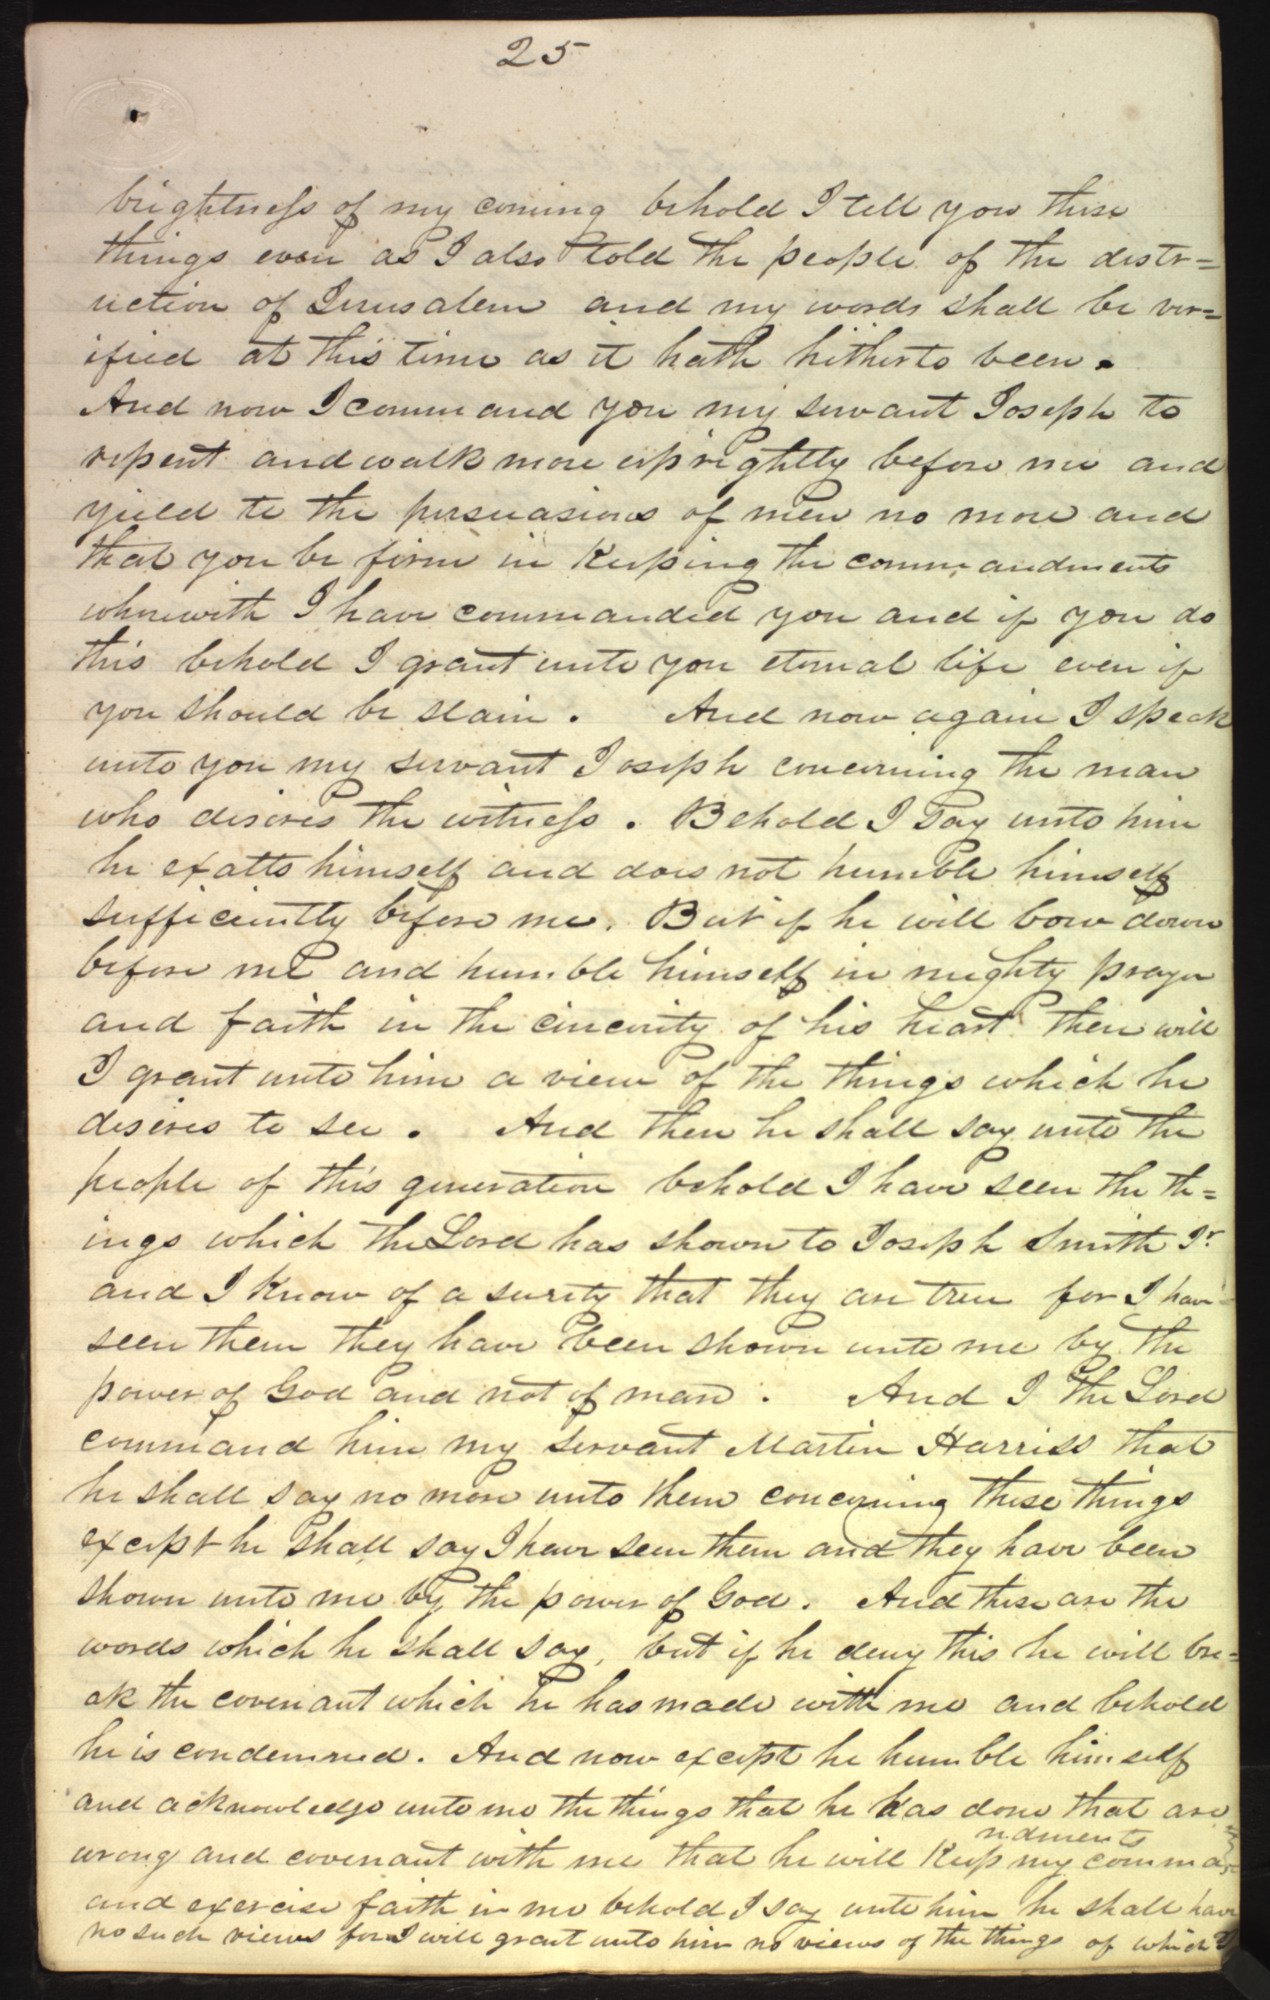 25
brightness of my coming behold I tell you these
things even as I also told the people of the distr=
uction of Jerusalem and my words shall be ver=
ified at this time as it hath hitherto been.
And now I command you my servant Joseph to
repent and walk more uprightly before me and
yield to the persuasions of men no more and
that you be firm in Keeping the commandments
wherewith I have commanded you and if you do
this behold I grant unto you eternal life even if
you should be slain. And now again I speak
unto you my servant Joseph concerning the man
who desires the witness. Behold I say unto him
he exalts himself and does not humble himself
sufficiently before me. But if he will bow down
before me and humble himself in mighty prayer
and faith in the cincerity of his heart then will
I grant unto him a view of the things which he
desires to see. And then he shall say unto the
people of this generation behold I have seen the th=
ings which the Lord has shown to Joseph Smith Jr.
and I Know of a surety that they are true for I have
seen them they have been shown unto me by the
power of God and not of man. And I the Lord
command him my servant Martin Harriss that
he shall say no more unto them concerning these things
except he shall say I have seen them and they have been
shown unto me by the power of God. And these are the
words which he shall say, but if he deny this he will bre=
ak the covenant which he has made with me and behold
he is condemned. And now except he humble himself
and acknowledge unto me the things that he has done that are
wrong and covenant with me that he will Keep my comma=
ndments
and exercise faith in me behold I say unto him he shall have
no such views for I will grant unto him no views of the things of which